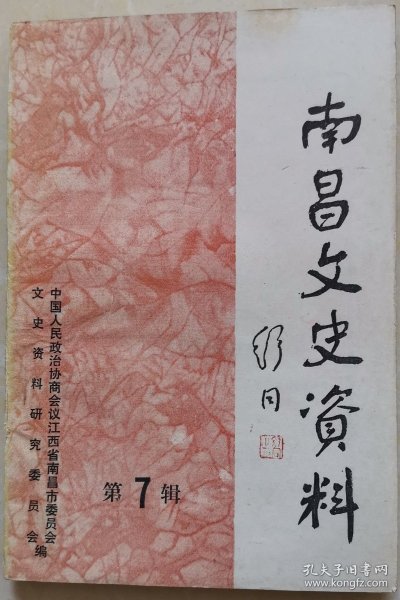 南昌文史資料
舒同
中国人民政治协商会议江西省南昌市委员会
文史资料研究委员会编
第7辑
孔夫子旧书网
www.kongfz.com